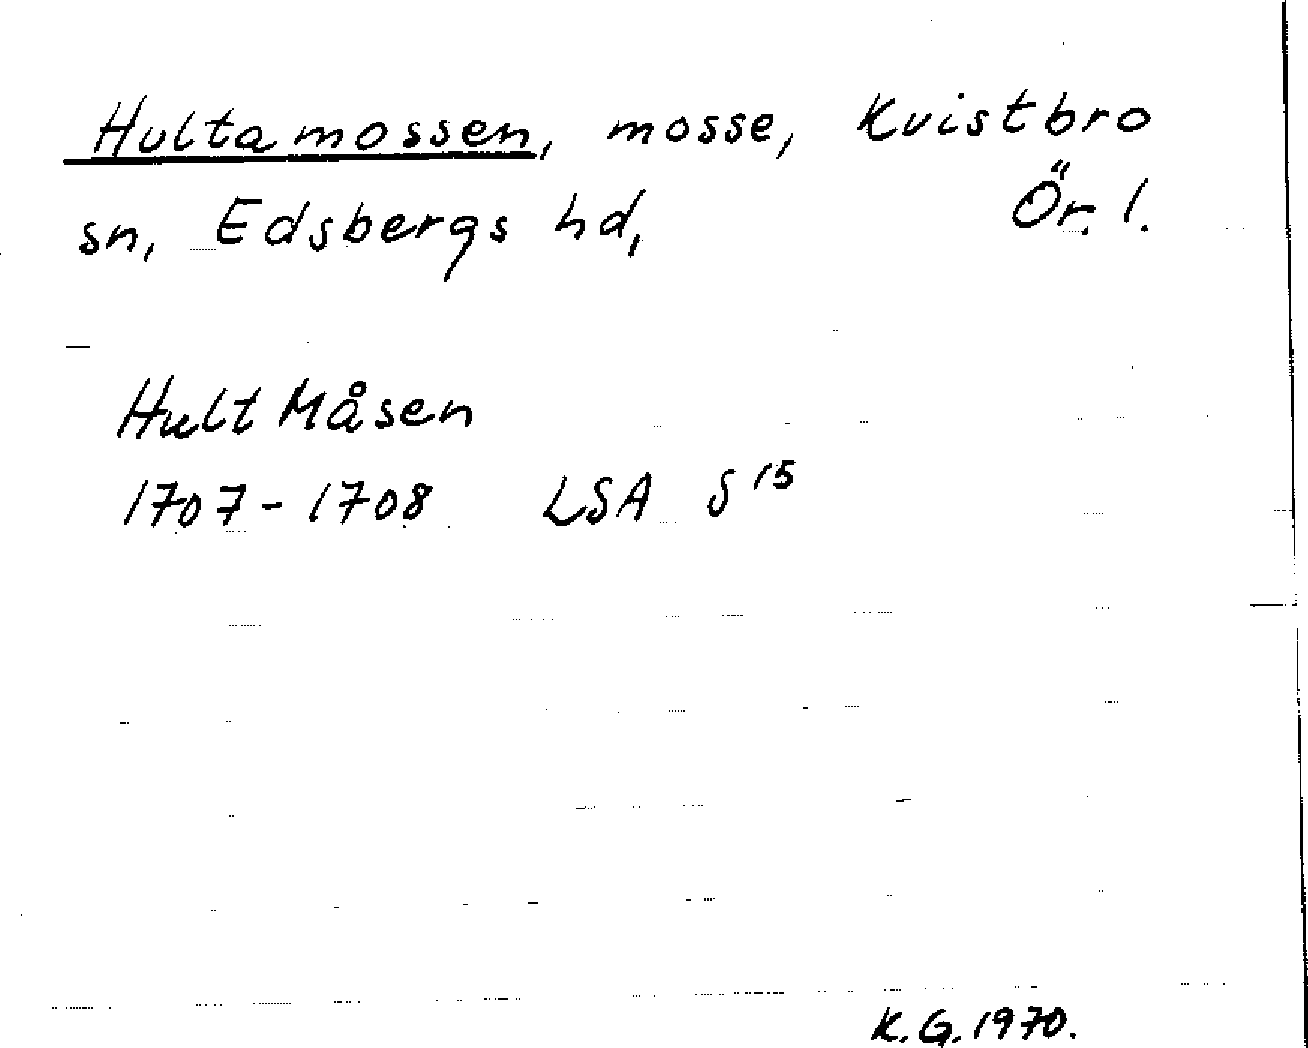 Hultamossen, mosse, Kvistbro
sn, Edsbergs hd, Ör. l.
Hult Måsen
1707-1708 LSA S 15
K.G. 1970.